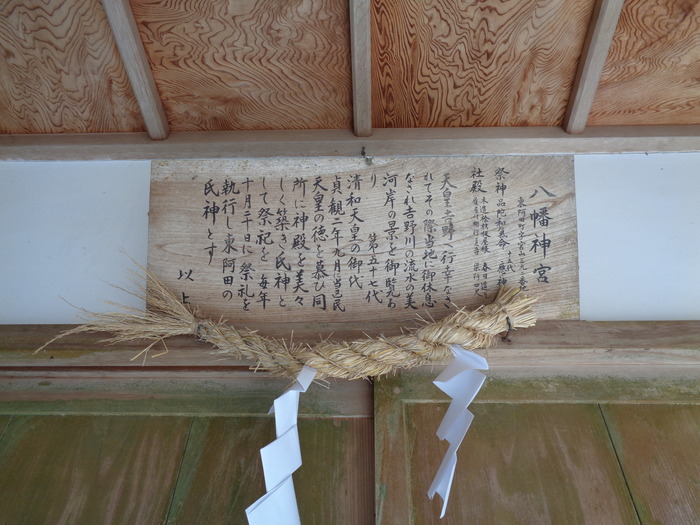 八幡神宮
東阿田町字宮山三九一番地
祭神 品陀和氣命
社殿
天皇吉野へ行幸なさ
れてその際当地に御休息
なされ吉野川の流水の美
河岸の景を御覧あ
り 第五十七代
清和天皇の御代
貞観二年九月当邑民
天皇の徳を慕ひ同
所に神殿を美々
しく築き氏神と
して祭祀を 毎年
十月二十日に祭礼を
執行し東阿田の
氏神とす
以上